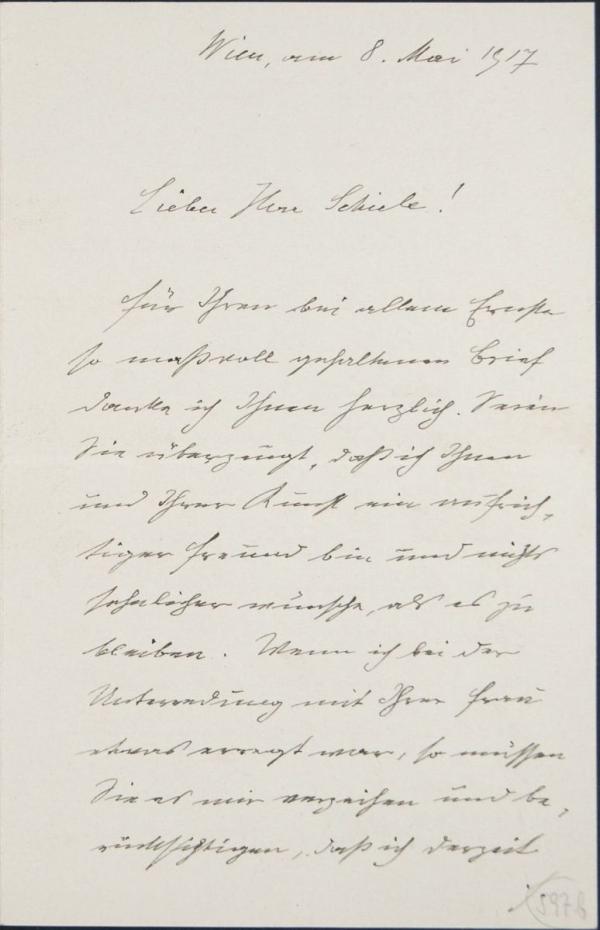 Wien, am 8. Mai 1917
Lieber Herr Schiele!
für Ihren bei allem Ernste
so maßvoll gehaltenen Brief
danke ich Ihnen herzlich. Seien
Sie überzeugt, daß ich Ihnen
und Ihrer Kunst ein aufrich-
tiger Freund bin und nichts
sehnlicher wünsche, als es zu
bleiben. Wenn ich bei der
Unterredung mit Ihrer Frau
etwas erregt war, so müssen
Sie es mir verzeihen und be-
rücksichtigen, daß ich derzeit
597b